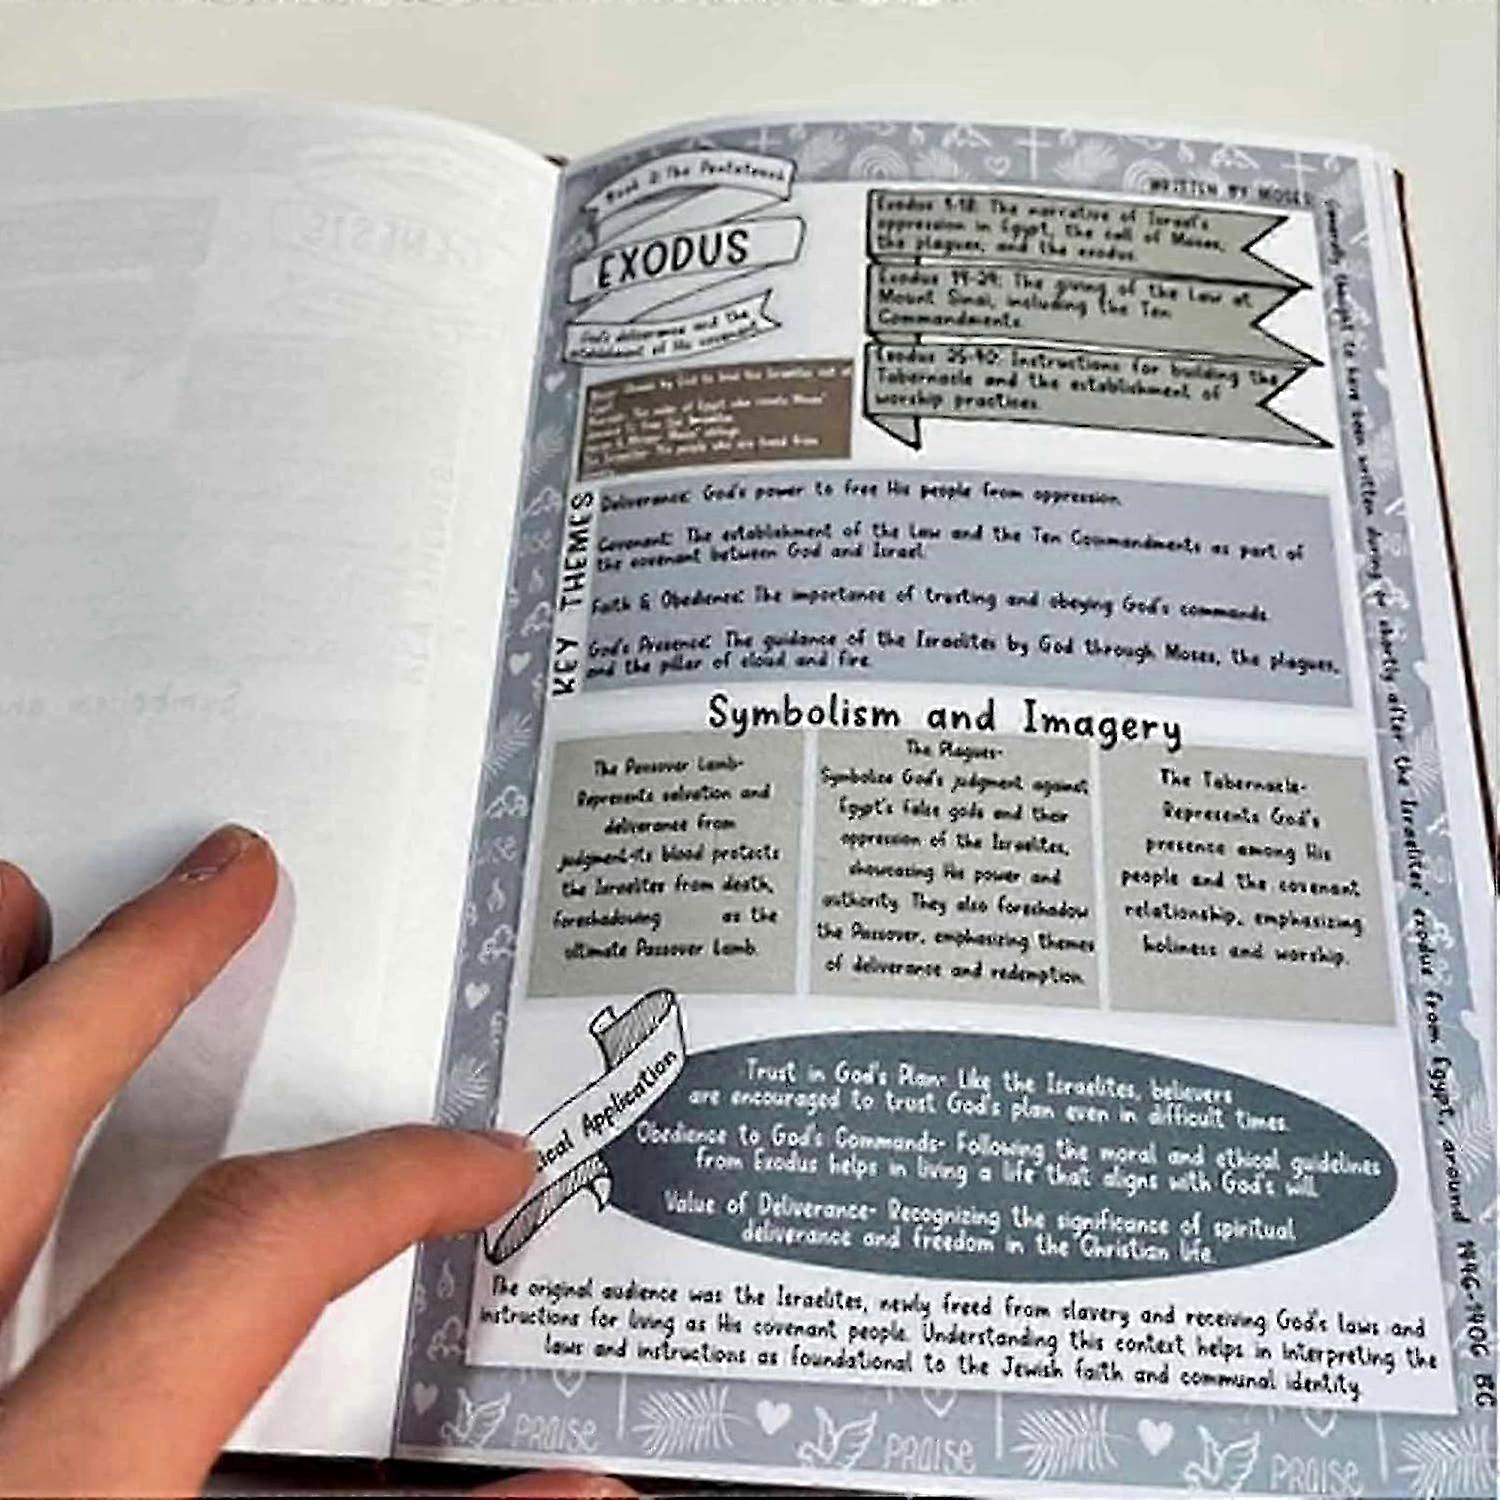 Book 2: The Pentateuch
EXODUS
God's deliverance and the
establishment of His covenant.
WRITTEN BY MOSES
Exodus 1-18: The narrative of Israel's
oppression in Egypt, the call of Moses,
the plagues, and the exodus.
Exodus 19-24: The giving of the Law at
Mount Sinai, including the Ten
Commandments.
Exodus 25-40: Instructions for building the
Tabernacle and the establishment of
worship practices.
chosen by God to lead the Israelites out of
The ruler of Egypt who
The people who are freed from
KEY THEMES
Deliverance: God's power to free His people from oppression.
Covenant: The establishment of the Law and the Ten Commandments as part of
the covenant between God and Israel.
Faith & Obedience: The importance of trusting and obeying God's commands.
God's Presence: The guidance of the Israelites by God through Moses, the plagues,
and the pillar of cloud and fire.
Symbolism and Imagery
The Passover Lamb-
Represents salvation and
deliverance from
judgment-its blood protects
the Israelites from death,
foreshadowing as the
ultimate Passover Lamb.
The Plagues-
Symbolize God's judgment against
Egypt's false gods and their
oppression of the Israelites,
showcasing His power and
authority. They also foreshadow
the Passover, emphasizing themes
of deliverance and redemption.
The Tabernacle-
Represents God's
presence among His
people and the covenant
relationship, emphasizing
holiness and worship.
ical Application
Trust in God's Plan- Like the Israelites, believers
are encouraged to trust God's plan even in difficult times.
Obedience to God's Commands- Following the moral and ethical guidelines
from Exodus helps in living a life that aligns with God's will.
Value of Deliverance- Recognizing the significance of spiritual
deliverance and freedom in the Christian life.
The original audience was the Israelites, newly freed from slavery and receiving God's laws and
instructions for living as His covenant people. Understanding this context helps in interpreting the
laws and instructions as foundational to the Jewish faith and communal identity.
Generally thought to have been written during or shortly after the Israelites' exodus from Egypt, around 1446-1406 BC
PRAISE
PRAISE
PRAISE
GENESIS